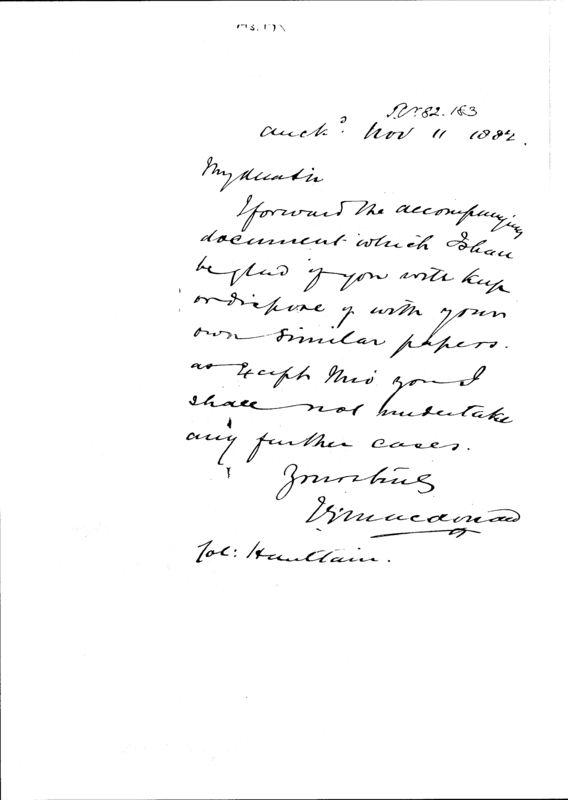 82.183
Auckd. Nov 11 1882.
My dear Sir
I forward the accompanying
document which I shall
be glad if you will keep
or dispose of with your
own similar papers.
as except thro you I
shall not undertake
any further cases.
Yours truly
Macdonald
Col: Haultain.